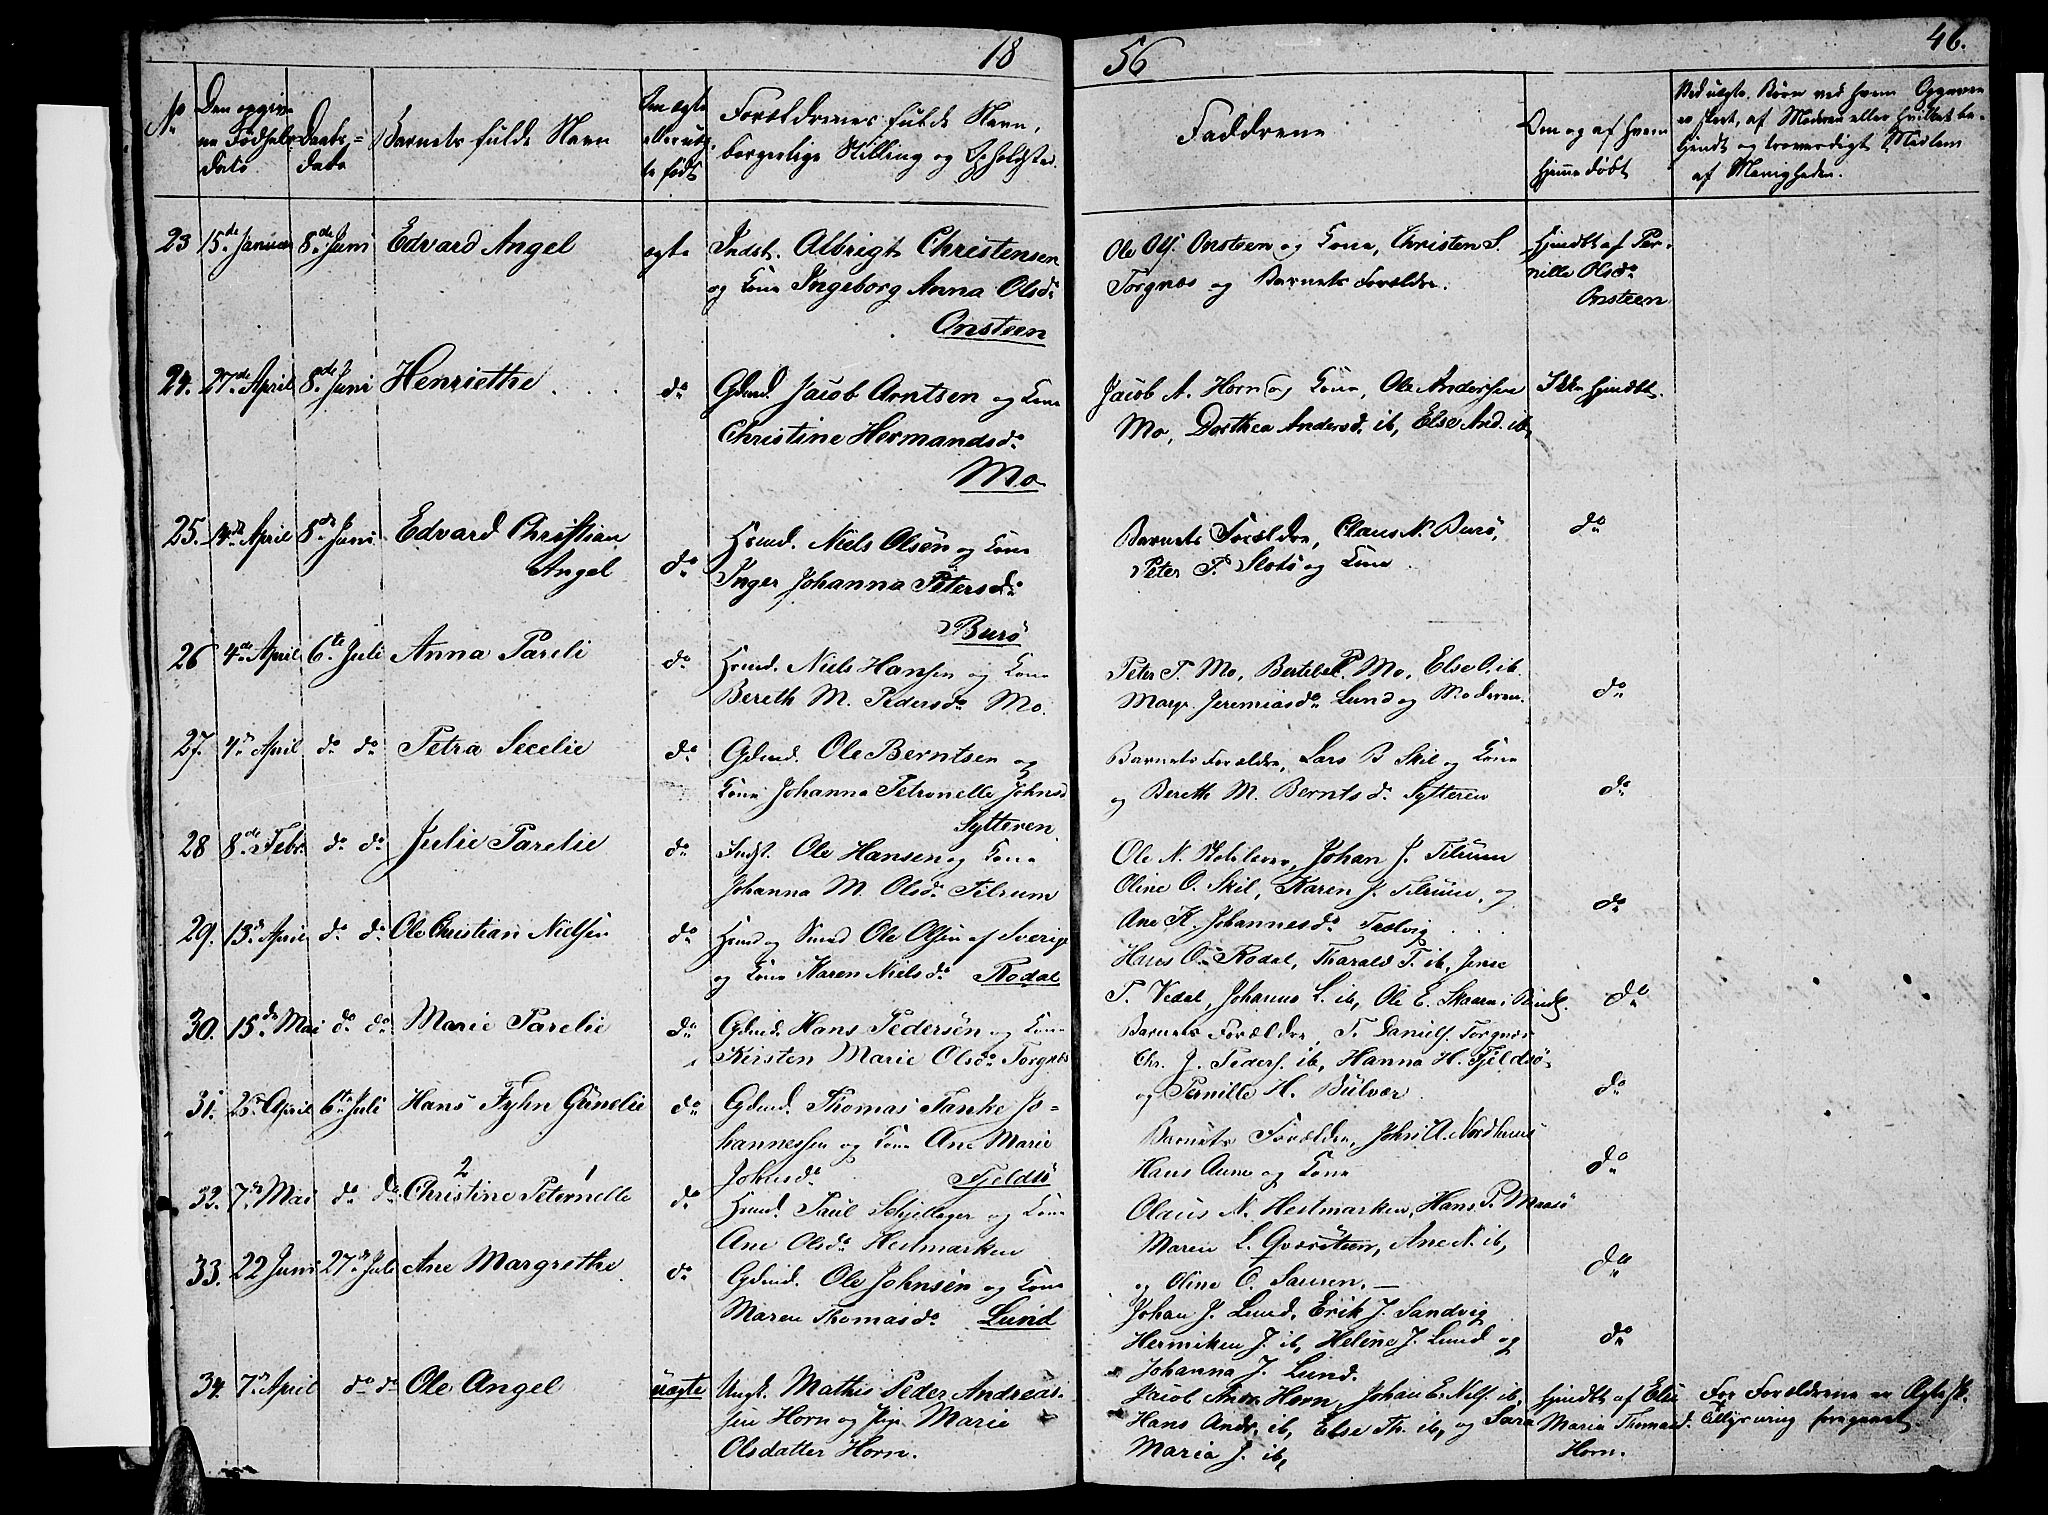 18 56 46.
No
Den opgiv-
ne Fødsels
Dato
Daabs-
dato
Barnets fulde Navn
Om ægte
eller uæg-
te født
Forældrenes fulde Navn,
borgerlige Stilling og Opholdsted.
Faddrene
Om og af hvem
hjemmedøbt
Ved uægte Børn ved hvem Opgaven
er skeet, af Moderen eller hvilket be-
kjendt og troværdigt Medlem
af Menigheden.
23 15de Januar 8de Juni Edvard Angel ægte Indst. Albrigt Christensen
og Kone Ingeborg Anna Olsdr
Onsteen
Ole Ols. Onsteen og Kone, Christen S.
Torgnæs og Barnets Forældre.
Hjemdbt af Per-
nille Olsdr
Onsteen
24. 27de April 8de Juni Henriethe do Gdmd. Jacob Arntsen og Kone
Christine Hermandsdr
Mo
Jacob A. Horn og Kone, Ole Andersen
Mo, Dorthea Andersd. ib, Else And. ib,
Ikke hjemdbt.
25. 14de April 8de Juni Edvard Christian
Angel
do Hrmd. Niels Olsen og Kone
Inger Johanna Petersdr
Burö
Barnets Forældre, Claus N. Burö,
Peter P. og Kone
do
26 4de April 6te Juli Anna Pareli do Hrmd. Niels Hansen og Kone
Bereth M. Pedersdr Mo.
Peter P. Mo, Bertebel P. Mo, Else O. ib.
Margr. Jeremiasdr Lund og Moderen.
do
27. 4de April do do Petra Secelie do Gdmd. Ole Berntsen og
Kone Johanna Petronelle Johnsd
Sytteren
Barnets Forældre, Lars B Skil og Kone
og Bereth M. Berntsdr Sytteren
do
28 8de Febr. do do Julie Parelie do Indst. Ole Hansen og Kone
Johanna M. Olsdr Tilrum
Ole N. Johan J. Tilrum
Oline O. Skil, Karen J. Tilrum, og
Ane K. Johannesdr Trælvig
do
29. 13de April do do Ole Christian Nielsen do Hrmd og Smed Ole Olsen af Sverige
og Kone Karen Nielsdr Rodal
Hans O. Rodal, Tharald T. ib, Jense
T. Vedal, Johanna L. ib, Ole E. Skaaren i Bindl.
do
30. 15de Mai do do Marie Parelie do Gdmd. Hans Pedersen og Kone
Kirsten Marie Olsdr Torgnæs
Barnets Forældre, T. Daniels. Torgnæs
Chr. J. Peders. ib, Hanna H. Fjeldsö
og Pernille H. Bülvær
do
31. 25de April 6te Juli Hans Fyhn Gunelie do Gdmd. Thomas Tanke Jo-
hannessen og Kone Ane Marie
Johnsdr Fjeldsö
Barnets Forældre, John A. Nordhuus
Hans Aune og Kone
do
32. 7de Mai do do 2 1
Christine Petronelle do Hrmd. Paul Schjellager og Kone
Ane Olsdr Hestmarken
Olaus N. Hestmarken, Hans P. Maasö
Maren L. Qværsteen, Ane N. ib,
og Oline O. Sausen.
do
33. 22 Juni 27de Juli Ane Margrethe do Gdmd. Ole Johnsen og Kone
Maren Thomasdr Lund
Johan J. Lund, Erik J. Sandvig
Herniken J. ib, Helene J. Lund og
Johanna J. Lund.
do
34. 7de April do do Ole Angel uægte Ungk. Mathis Peder Andreas-
sen Horn og Pige Marie
Olsdatter Horn.
Jacob Horn, Johan E. Nils. ib,
Hans Andr. ib, Else Th. ib, og Sara
Maria J. ib,
Hjemdbt af Else
Maria Thomasd.
Horn.
For Forældrene er
foregaaet